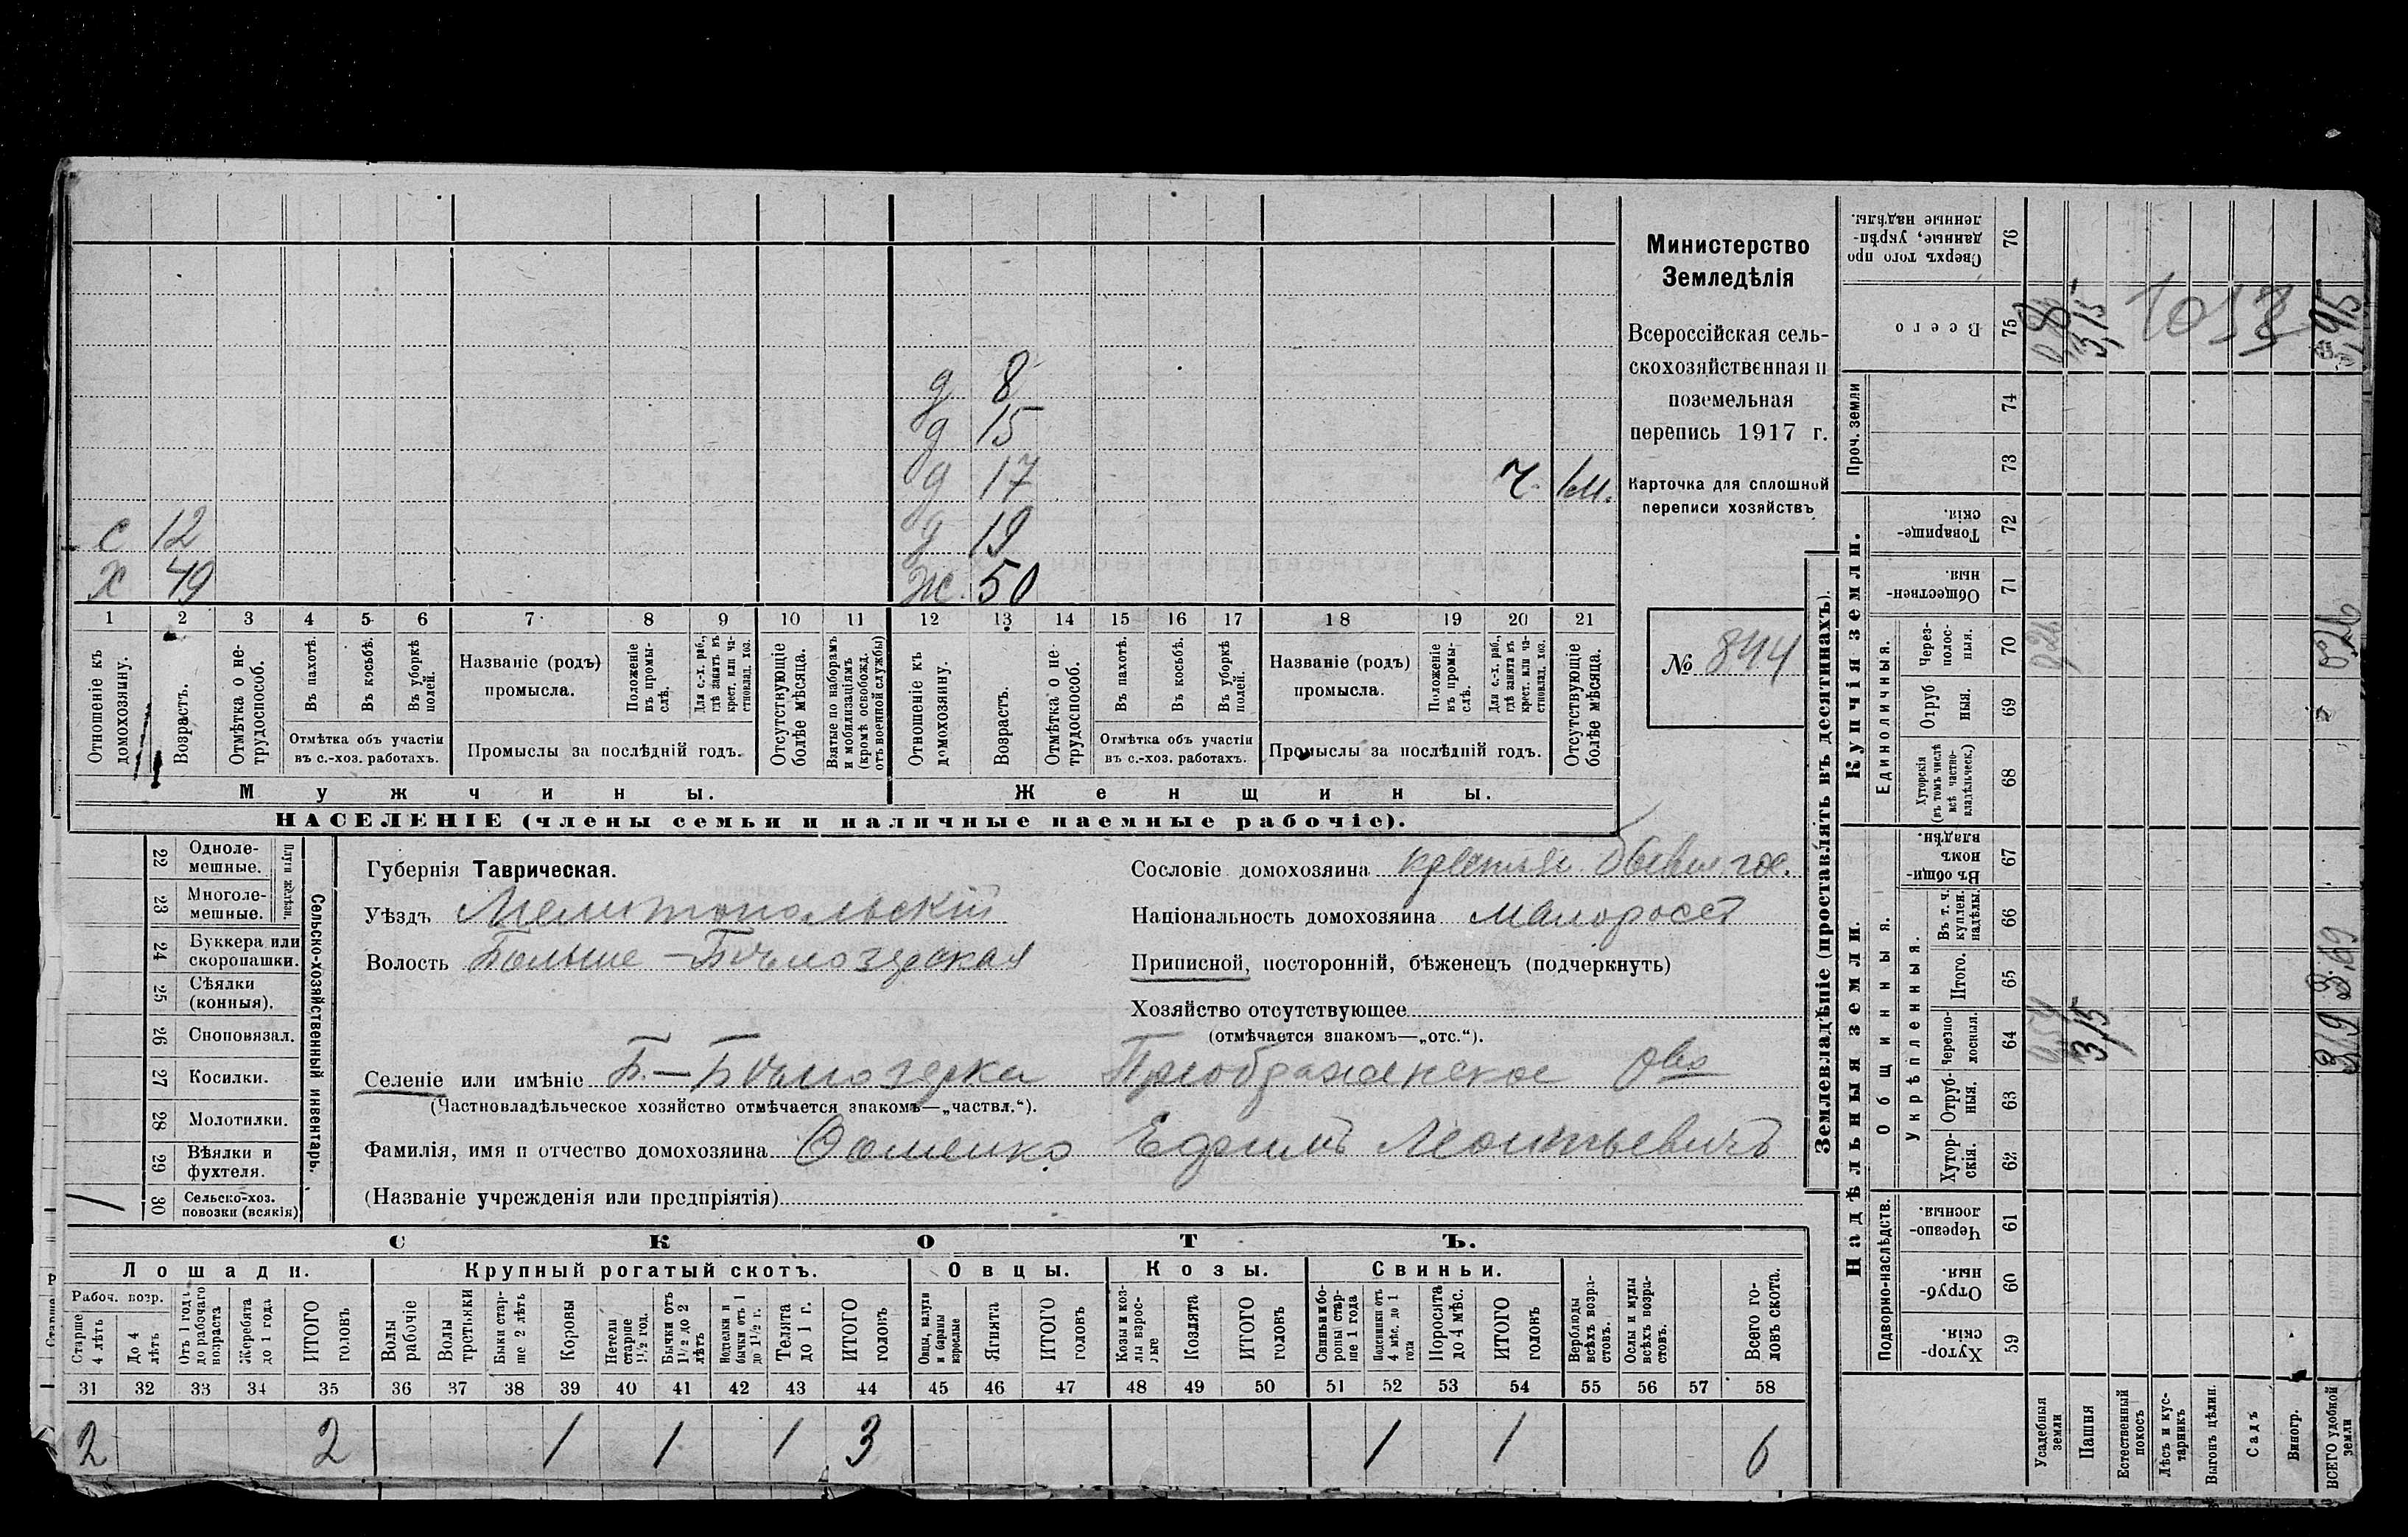 Министерство
Земледѣлія
Всероссійская сель-
скохозяйственная и
поземельная
перепись 1917 г.
Карточка для сплошной
переписи хозяйствъ
№ 844
д 8
д 15
д 17 ч. 1 м.
с 12 д 19
х 49 ж. 50
1 2 3 4 5 6 7 8 9 10 11 12 13 14 15 16 17 18 19 20 21
Отношеніе къ домохозяину.
Возрастъ.
Отмѣтка о не-трудоспособ.
Въ пахотѣ.
Въ косьбѣ.
Въ уборкѣ полей.
Отмѣтка объ участіи
въ с.-хоз. работахъ.
Названіе (родъ)
промысла.
Положеніе въ промы-слѣ.
Для с.-х. раб., гдѣ занятъ въ крест. или ча-стновлад. хоз.
Промыслы за послѣдній годъ.
Отсутствующіе болѣе мѣсяца.
Взятые по наборамъ и мобилизаціямъ (кромѣ освобожд. отъ военной службы)
Отношеніе къ домохозяину.
Возрастъ.
Отмѣтка о не-трудоспособ.
Въ пахотѣ.
Въ косьбѣ.
Въ уборкѣ полей.
Отмѣтка объ участіи
въ с.-хоз. работахъ.
Названіе (родъ)
промысла.
Положеніе въ промы-слѣ.
Для с.-х. раб., гдѣ занята въ крест. или ча-стновлад. хоз.
Промыслы за послѣдній годъ.
Отсутствующіе болѣе мѣсяца.
Мужчины. Женщины.
НАСЕЛЕНІЕ (члены семьи и наличные наемные рабочіе).
Сельско-хозяйственный инвентарь.
Плуги желѣзн.
22 Одноле-мешные.
23 Многоле-мешные.
24 Буккера или скоропашки.
25 Сѣялки (конныя).
26 Сноповязал.
27 Косилки.
28 Молотилки.
29 Вѣялки и фухтеля.
1 30 Сельско-хоз. повозки (всякія)
Губернія Таврическая.
Уѣздъ Мелитопольскій
Волость Больше-Бѣлозерская
Сословіе домохозяина крестьян. бывш. гос.
Національность домохозяина малороссъ
Приписной, посторонній, бѣженецъ (подчеркнуть)
Хозяйство отсутствующее
(отмѣчается знакомъ—„отс.“).
Селеніе или имѣніе Б.-Бѣлозерка Преображенское о-во
(Частновладѣльческое хозяйство отмѣчается знакомъ—„частвл.“).
Фамилія, имя и отчество домохозяина Ефимъ Леонтьевичъ
(Названіе учрежденія или предпріятія)
СКОТЪ.
Лошади. Крупный рогатый скотъ. Овцы. Козы. Свиньи.
Рабоч. возр.
Старше 4 лѣтъ
До 4 лѣтъ
Отъ 1 года до рабочаго возраста
Жеребята до 1 года
ИТОГО головъ
Волы рабочіе
Волы третьяки
Быки стар-ше 2 лѣтъ
Коровы
Нетели старше 1½ год.
Бычки отъ 1½ до 2 лѣтъ
Подтелки и бычки отъ 1 до 1½ г.
Телята до 1 г.
ИТОГО головъ
Овцы, валухи и бараны взрослые
Ягнята
ИТОГО головъ
Козы и коз-лы взрос-лые
Козлята
ИТОГО головъ
Свиньи и бо-ровы стар-ше 1 года
Подсвинки отъ 4 мѣс. до 1 года
Поросята до 4 мѣс.
ИТОГО головъ
Верблюды всѣхъ возра-стовъ.
Ослы и мулы всѣхъ возра-стовъ.
Всего го-ловъ скота.
31 32 33 34 35 36 37 38 39 40 41 42 43 44 45 46 47 48 49 50 51 52 53 54 55 56 57 58
2 2 1 1 1 3 1 1 6
Землевладѣніе (проставлять въ десятинахъ).
Надѣльныя земли.
Купчія земли.
Проч. земли
Подворно-наслѣдств.
Общинныя.
Укрѣпленныя.
Единоличныя.
Хутор-скія. 59
Отруб-ныя. 60
Черезпо-лосныя. 61
Хутор-скія. 62
Отруб-ныя. 63
Черезпо-лосныя. 64
Итого. 65
Въ т. ч. куплен. надѣлы 66
Въ общи-номъ владѣн. 67
Хуторскія (въ томъ числѣ всѣ частно-владѣльческ.) 68
Отруб ныя. 69
Через-полос-ныя. 70
Обществен-ныя. 71
Товарище-скія. 72
73
74
Всего 75
Сверхъ того про данные, укрѣп-ленные надѣлы. 76
Усадебныя земли
Пашня 3,15 3,15
Естественный покосъ
Лѣсъ и кус-тарникъ
Выгонъ цѣлин.
Садъ
Виногр.
ВСЕГО удобной земли 3,69 3,69 0,26